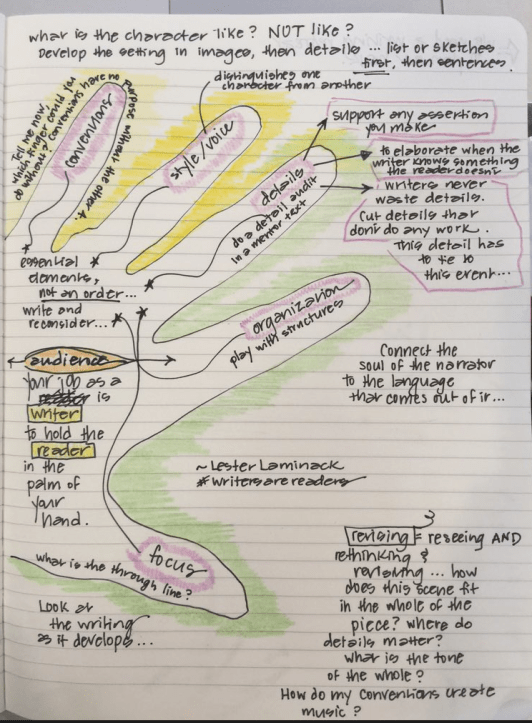 what is the character like? NOT like?
Develop the setting in images, then details ... list or sketches
first, then sentences.
Tell me now,
which finger could you
do without? Conventions have no
purpose without the other 4
conventions
style/voice
distinguishes one
character from another
details
do a detail audit
in a mentor text
support any assertion
you make
to elaborate when the
writer knows something
the reader doesn't
writers never
waste details.
Cut details that
don't do any work.
This detail has
to tie to
this event...
* essential
elements,
not an order...
write and
reconsider...
organization
play with structures
audience
your job as a
is
writer
to hold the
reader
in the
palm of
your
hand.
Connect the
soul of the narrator
to the language
that comes out of it...
~ Lester Laminack
#writersarereaders
focus
what is the through line?
Look at
the writing
as it develops...
revising = reseeing AND
rethinking &
revisiting ... how
does this scene fit
in the whole of the
piece? where do
details matter?
what is the tone
of the whole?
How do my conventions create
music?